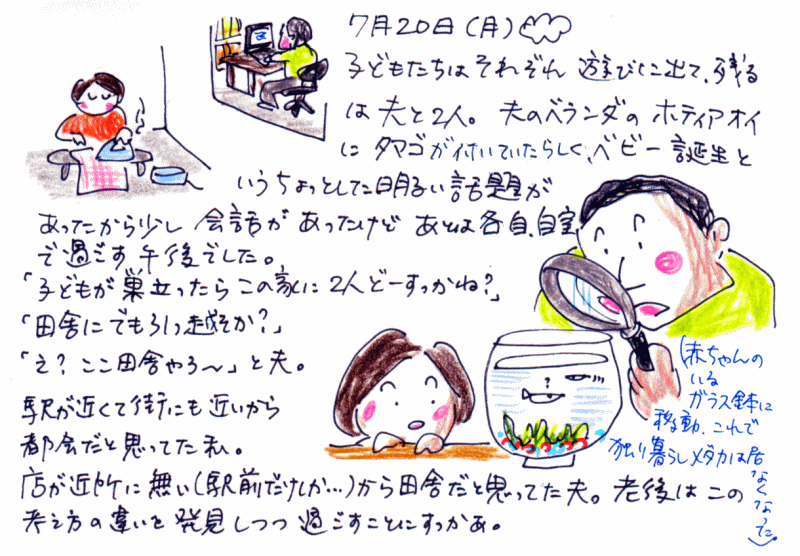 7月20日(月)
子どもたちはそれぞれ遊びに出て、残る
は夫と2人。夫のベランダのホティアオイ
にタマゴが付いていたらしく、ベビー誕生と
いうちょっとした明るい話題が
あったから少し会話があったけど あとは各自、自室
で過ごす午後でした。
「子どもが巣立ったらこの家に2人どーすっかね?」
「田舎にでも引っ越そか?」
「え?ここ田舎やろ〜」と夫。
駅が近くて街にも近いから
都会だと思ってた私。
店が近所に無い(駅前だけしか…)から田舎だと思ってた夫。老後はこの
考え方の違いを発見しつつ過ごすことにすっかあ。
?
赤ちゃんの
いる
ガラス鉢に
移動、これで
独り暮らしメダカは居
なくなった。